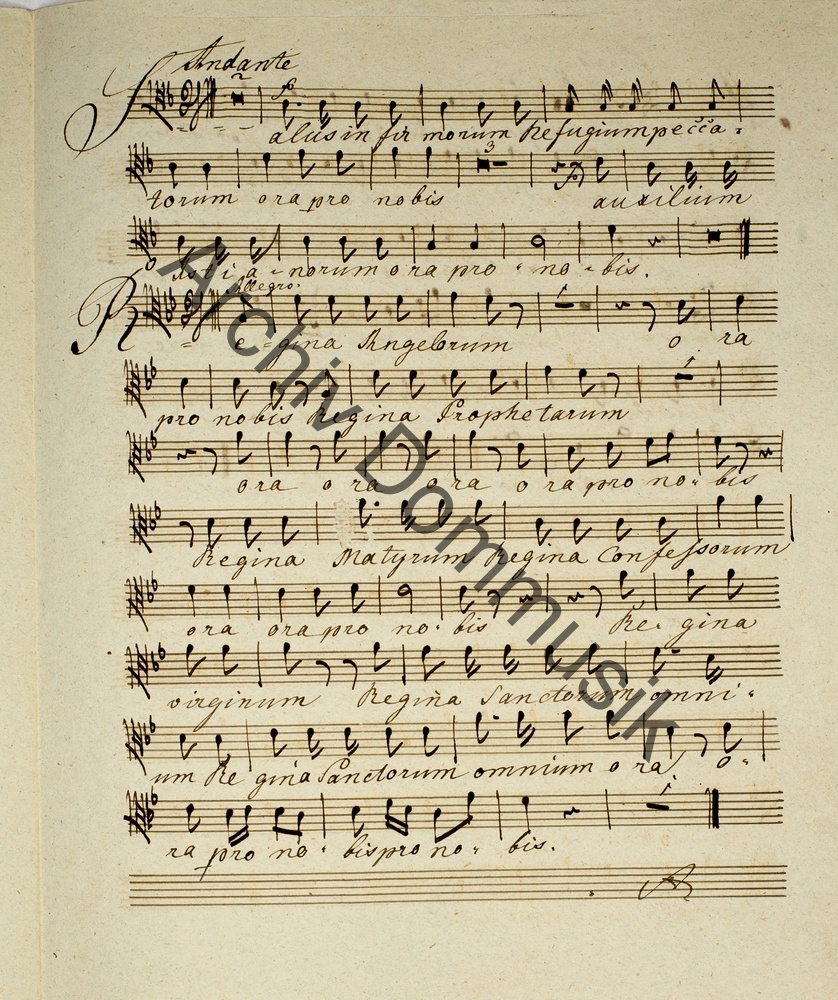 Andante
Salus in fir morum Refugium pecca =
torum ora pro nobis auxilium
Xsti a - norum ora pro - no - bis.
Allegro.
Re = gina Angelorum o ra
pro nobis Regina Prophetarum
ora o ra ora o ra pro no = bis
Regina Matyrum Regina Confessorum
ora ora pro no = bis Re = gina
virginum Regina Sanctorum omni =
um Re gina Sanctorum omnium o ra o =
ra pro no = bis pro no = bis.
Archiv Dommusik